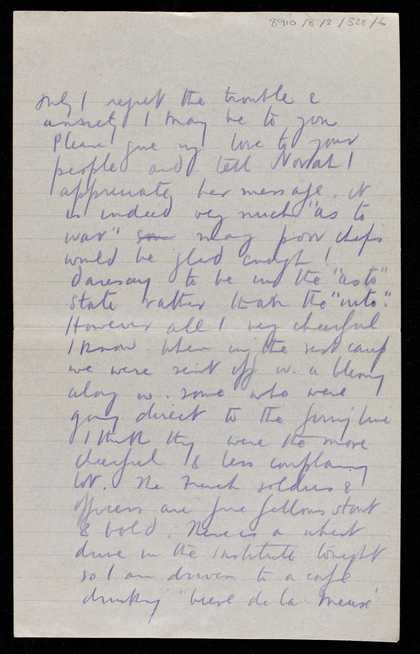 8910/8/2/528/6
only I regret the trouble &
anxiety I may be to you
Please give my love to your
people and tell Norah I
appreciate her message. it
is indeed very much "as to
war" some many poor chaps
would be glad enough I
daresay to be in the "as to"
state rather than the "into".
However all I very cheerful
I know when in the rest camp
we were sent off w. a
along w. some who were
going direct to the firing line
I think they were the more
cheerful & less complaining
lot. The French soldiers &
officers are fine fellows stout
& bold. There is a whist
drive in the Institute tonight
so I am driven to a café
drinking "biere de la Meuse"